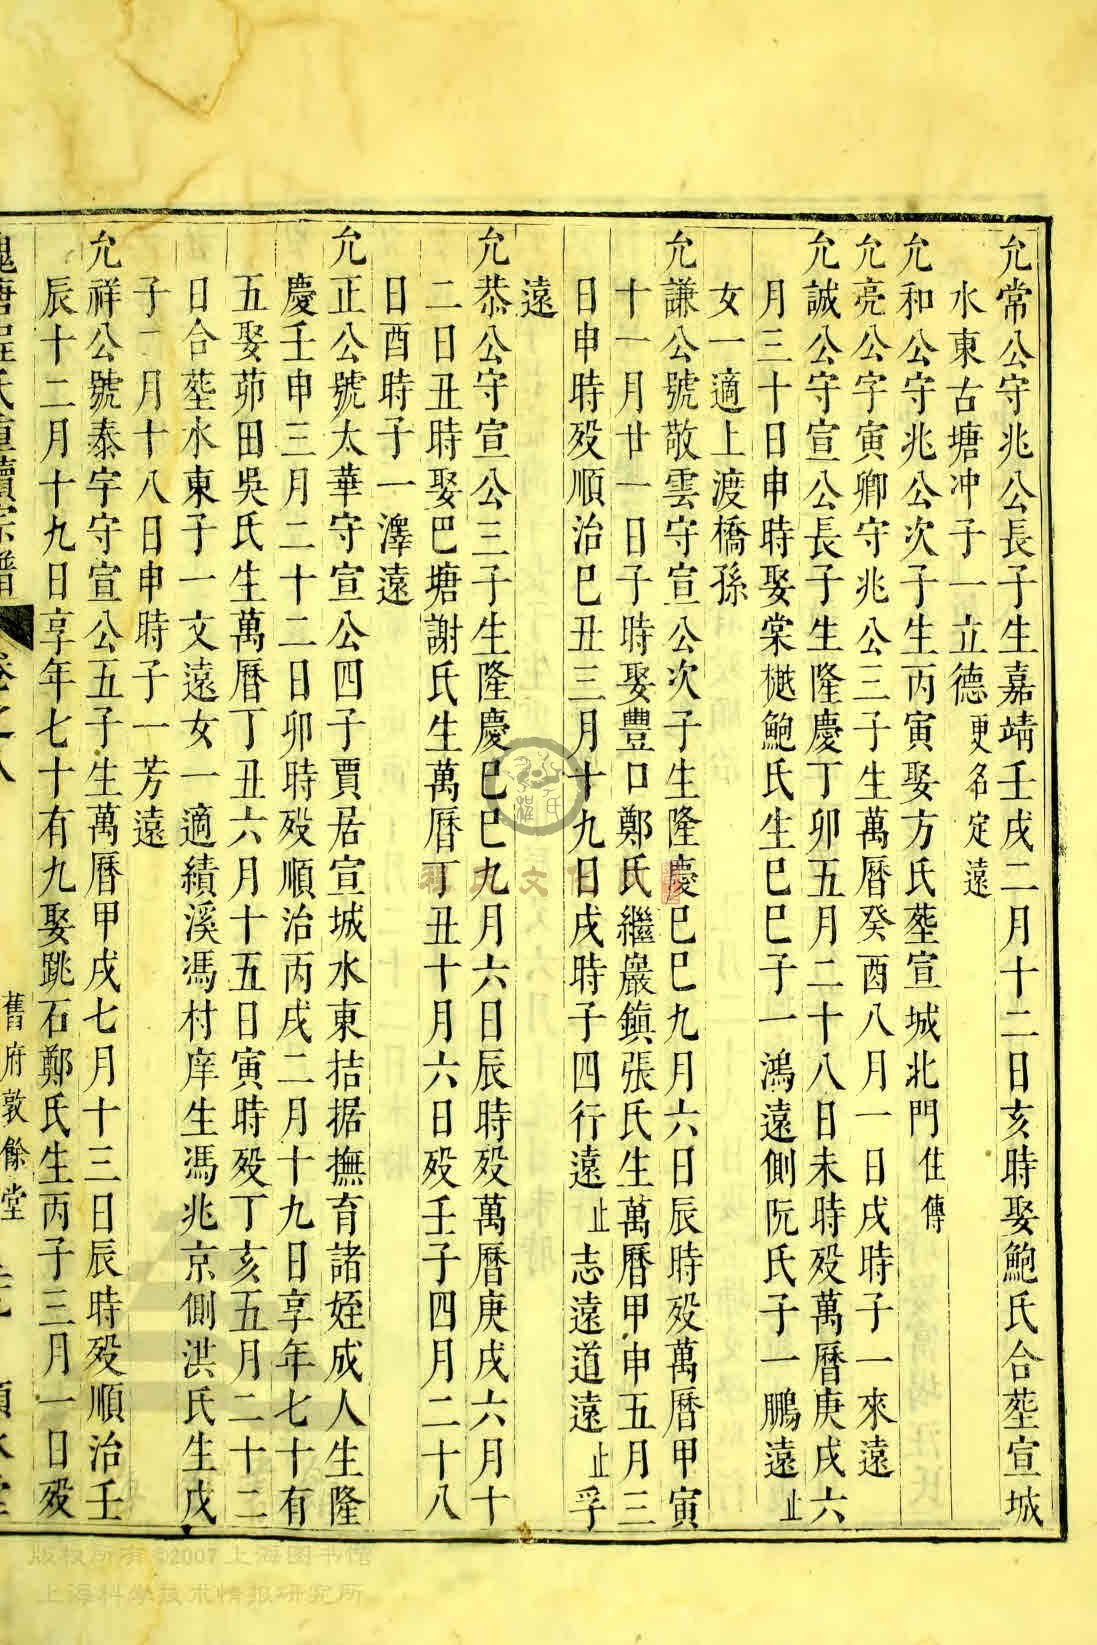 允常公守兆公長子生嘉靖壬戌二月十二日亥時娶鮑氏合塟宣城
水東古塘冲子一立德更名定遠
允和公守兆公次子生丙寅娶方氏塟宣城北門住傳
允亮公字寅卿守兆公三子生萬曆癸酉八月一日戌時子一來遠
允誠公守宣公長子生隆慶丁卯五月二十八日未時殁萬曆庚戌六
月三十日申時娶棠樾鮑氏生巳巳子一鴻遠側阮氏子一鵬遠止
女一適上渡橋孫
允謙公號敬雲守宣公次子生隆慶巳巳九月六日辰時殁萬曆甲寅
十一月廿一日子時娶豐口鄭氏繼巖鎮張氏生萬曆甲申五月三
日申時殁順治巳丑三月十九日戌時子四行遠止志遠道遠止孚
遠
允恭公守宣公三子生隆慶巳巳九月六日辰時殁萬曆庚戌六月十
二日丑時娶巴塘謝氏生萬曆丁丑十月六日殁壬子四月二十八
日酉時子一澤遠
允正公號太華守宣公四子賈居宣城水東拮据撫育諸姪成人生隆
慶壬申三月二十二日卯時殁順治丙戌二月十九日享年七十有
五娶茆田吳氏生萬曆丁丑六月十五日寅時殁丁亥五月二十二
日合塟水東子一文遠女一適績溪馮村庠生馮兆京側洪氏生戊
子一月十八日申時子一芳遠
允祥公號泰宇守宣公五子生萬曆甲戌七月十三日辰時殁順治壬
辰十二月十九日享年七十有九娶跳石鄭氏生丙子三月一日殁
槐塘程氏重續宗譜 卷之八 舊府敦餘堂
程氏文化
版权所有 ©2007 上海图书馆
上海科学技术情报研究所